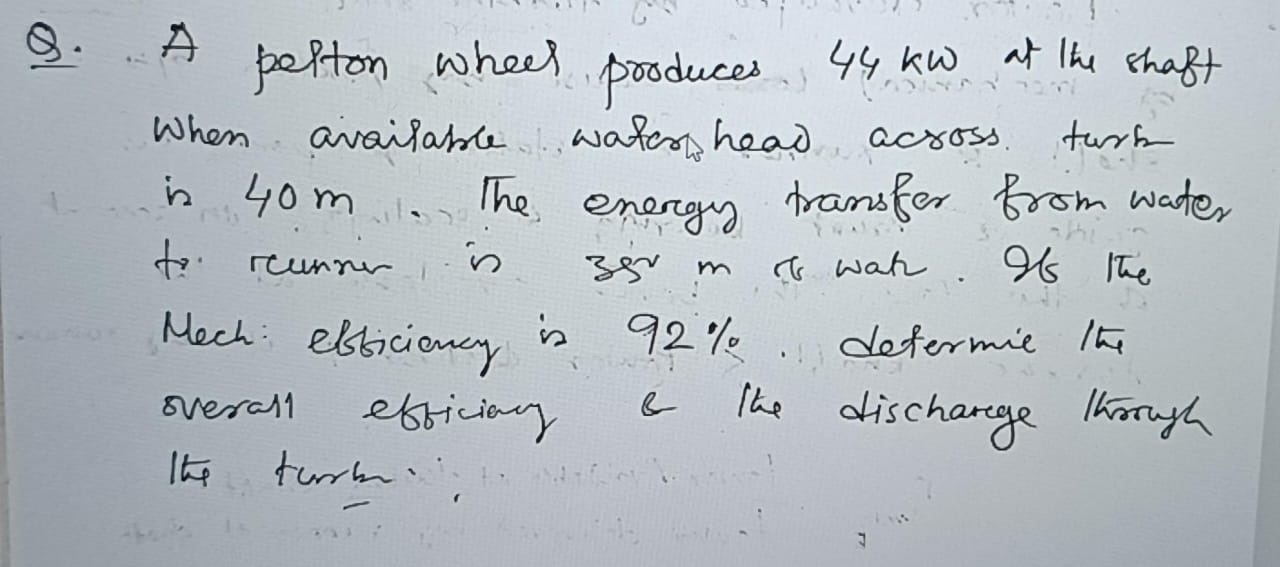 Q. A pelton wheel produces 44 kW at the shaft
when available water head across turb
is 40 m. The energy transfer from water
to runner is m of wat. If the
Mech: efficiency is 92%. determie the
overall efficiency & the discharge through
the turb.